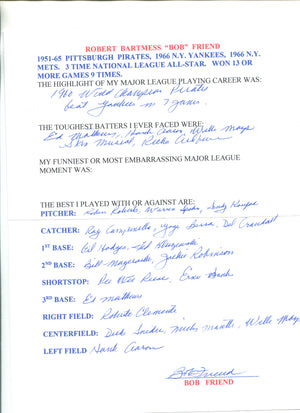 ROBERT BARTMESS "BOB" FRIEND
1951-65 PITTSBURGH PIRATES, 1966 N.Y. YANKEES, 1966 N.Y.
METS. 3 TIME NATIONAL LEAGUE ALL-STAR. WON 13 OR
MORE GAMES 9 TIMES.
THE HIGHLIGHT OF MY MAJOR LEAGUE PLAYING CAREER WAS:
1960 World Champion Pirates
beat Yankees in 7 games.
THE TOUGHEST BATTERS I EVER FACED WERE:
Ed Mathews, Hank Aaron, Willie Mays
Stan Musial, Richie Ashburn
MY FUNNIEST OR MOST EMBARRASSING MAJOR LEAGUE
MOMENT WAS:
THE BEST I PLAYED WITH OR AGAINST ARE:
PITCHER: Robin Roberts, Warren Spahn, Sandy Koufax
CATCHER: Roy Campanella, Yogi Berra, Del Crandall
1ST BASE: Gil Hodges, Ted Kluszewski
2ND BASE: Bill Mazeroski, Jackie Robinson
SHORTSTOP: Pee Wee Reese, Ernie Banks
3RD BASE: Ed Mathews
RIGHT FIELD: Roberto Clemente
CENTERFIELD: Duke Snider, Mickey Mantle, Willie Mays
LEFT FIELD Hank Aaron
Bob Friend
BOB FRIEND